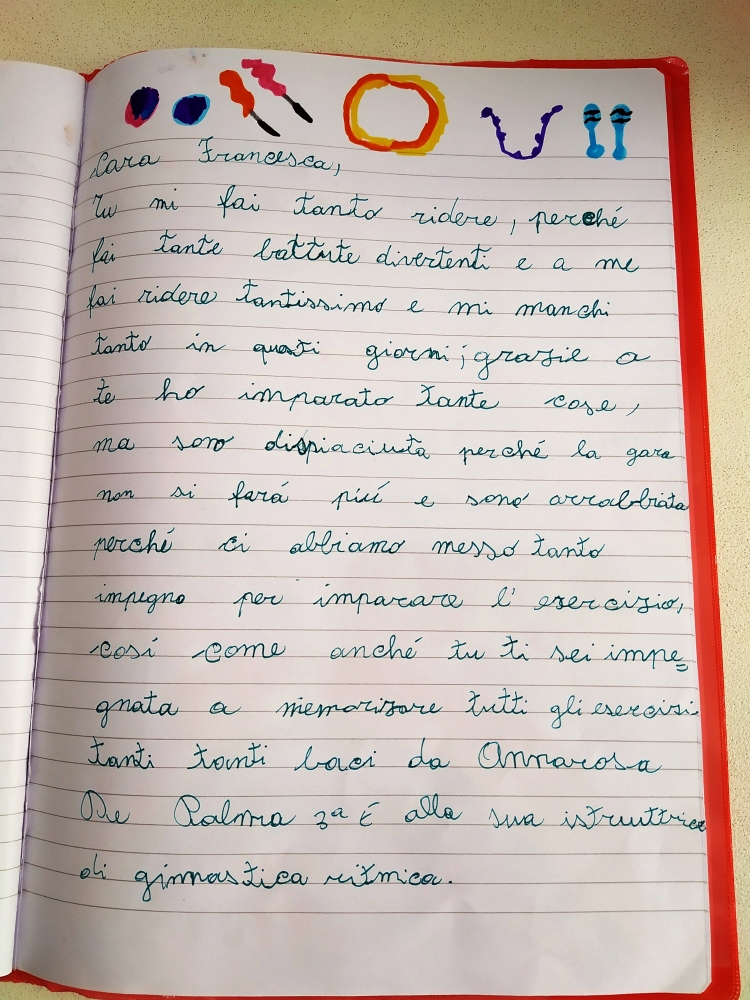 Cara Francesca,
Tu mi fai tanto ridere, perché
fai tante battute divertenti e a me
fai ridere tantissimo e mi manchi
tanto in questi giorni; grazie a
te ho imparato tante cose,
ma sono dispiaciuta perché la gara
non si fará piú e sono arrabbiata
perché ci abbiamo messo tanto
impegno per imparare l'esercizio,
cosí come anché tu ti sei impe=
gnata a memorizzare tutti gli esercizi
tanti tanti baci da Annarosa
De Palma 3ª E alla sua istruttrice
di ginnastica ritmica.